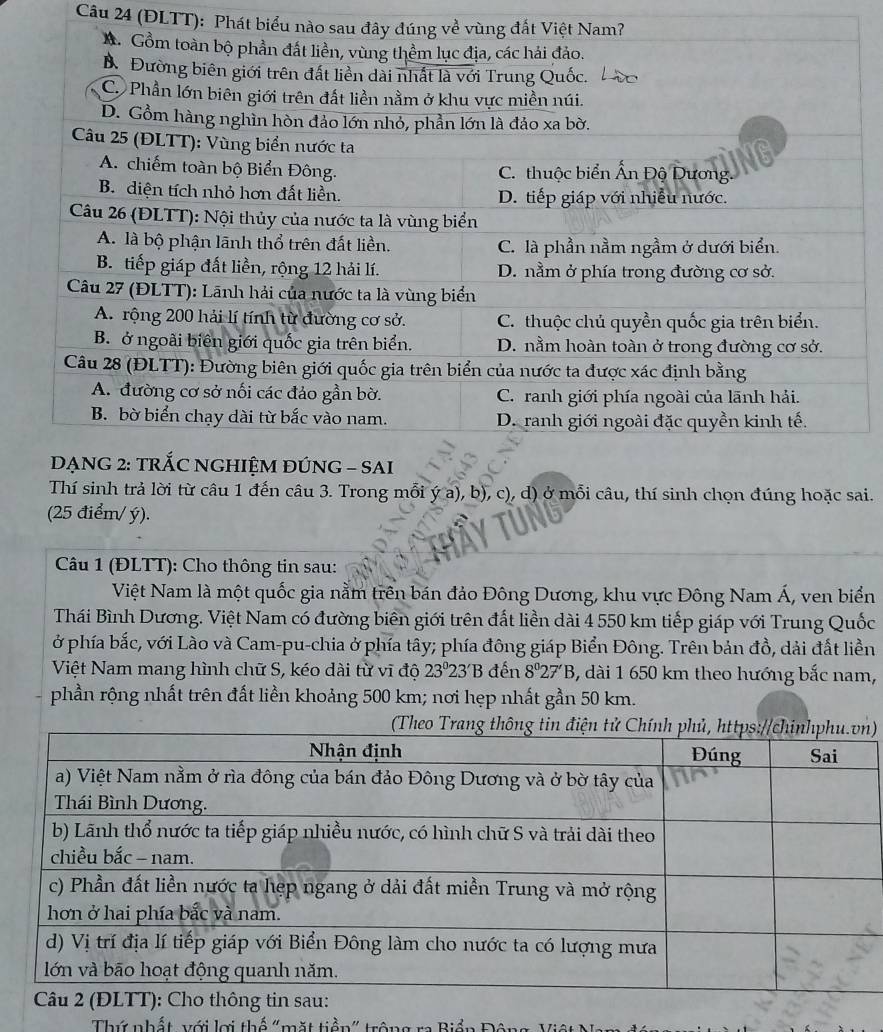 Câu 24 (ĐLTT): Phát biểu nào sau đây đúng về vùng đất Việt Nam?
A. Gồm toàn bộ phần đất liền, vùng thềm lục địa, các hải đảo.
B. Đường biên giới trên đất liền dài nhất là với Trung Quốc. Lào
C. Phần lớn biên giới trên đất liền nằm ở khu vực miền núi.
D. Gồm hàng nghìn hòn đảo lớn nhỏ, phần lớn là đảo xa bờ.
Câu 25 (ĐLTT): Vùng biển nước ta
A. chiếm toàn bộ Biển Đông. C. thuộc biển Ấn Độ Dương.
B. diện tích nhỏ hơn đất liền. D. tiếp giáp với nhiều nước.
Câu 26 (ĐLTT): Nội thủy của nước ta là vùng biển
A. là bộ phận lãnh thổ trên đất liền. C. là phần nằm ngầm ở dưới biển.
B. tiếp giáp đất liền, rộng 12 hải lí. D. nằm ở phía trong đường cơ sở.
Câu 27 (ĐLTT): Lãnh hải của nước ta là vùng biển
A. rộng 200 hải lí tính từ đường cơ sở. C. thuộc chủ quyền quốc gia trên biển.
B. ở ngoài biên giới quốc gia trên biển. D. nằm hoàn toàn ở trong đường cơ sở.
Câu 28 (ĐLTT): Đường biên giới quốc gia trên biển của nước ta được xác định bằng
A. đường cơ sở nối các đảo gần bờ. C. ranh giới phía ngoài của lãnh hải.
B. bờ biển chạy dài từ bắc vào nam. D. ranh giới ngoài đặc quyền kinh tế.
DẠNG 2: TRẮC NGHIỆM ĐÚNG – SAI
Thí sinh trả lời từ câu 1 đến câu 3. Trong mỗi ý a), b), c), d) ở mỗi câu, thí sinh chọn đúng hoặc sai.
(25 điểm/ ý).
THẦY TÙNG
Câu 1 (ĐLTT): Cho thông tin sau:
Việt Nam là một quốc gia nằm trên bán đảo Đông Dương, khu vực Đông Nam Á, ven biển
Thái Bình Dương. Việt Nam có đường biên giới trên đất liền dài 4 550 km tiếp giáp với Trung Quốc
ở phía bắc, với Lào và Cam-pu-chia ở phía tây; phía đông giáp Biển Đông. Trên bản đồ, dải đất liền
Việt Nam mang hình chữ S, kéo dài từ vĩ độ 23⁰23′B đến 8⁰27′B, dài 1 650 km theo hướng bắc nam,
phần rộng nhất trên đất liền khoảng 500 km; nơi hẹp nhất gần 50 km.
(Theo Trang thông tin điện tử Chính phủ, https://chinhphu.vn)
Nhận định Đúng Sai
a) Việt Nam nằm ở rìa đông của bán đảo Đông Dương và ở bờ tây của
Thái Bình Dương.
b) Lãnh thổ nước ta tiếp giáp nhiều nước, có hình chữ S và trải dài theo
chiều bắc – nam.
c) Phần đất liền nước ta hẹp ngang ở dải đất miền Trung và mở rộng
hơn ở hai phía bắc và nam.
d) Vị trí địa lí tiếp giáp với Biển Đông làm cho nước ta có lượng mưa
lớn và bão hoạt động quanh năm.
Câu 2 (ĐLTT): Cho thông tin sau:
Thứ nhất, với lợi thế "mặt tiền" trông ra Biển Đông, Việt Nam